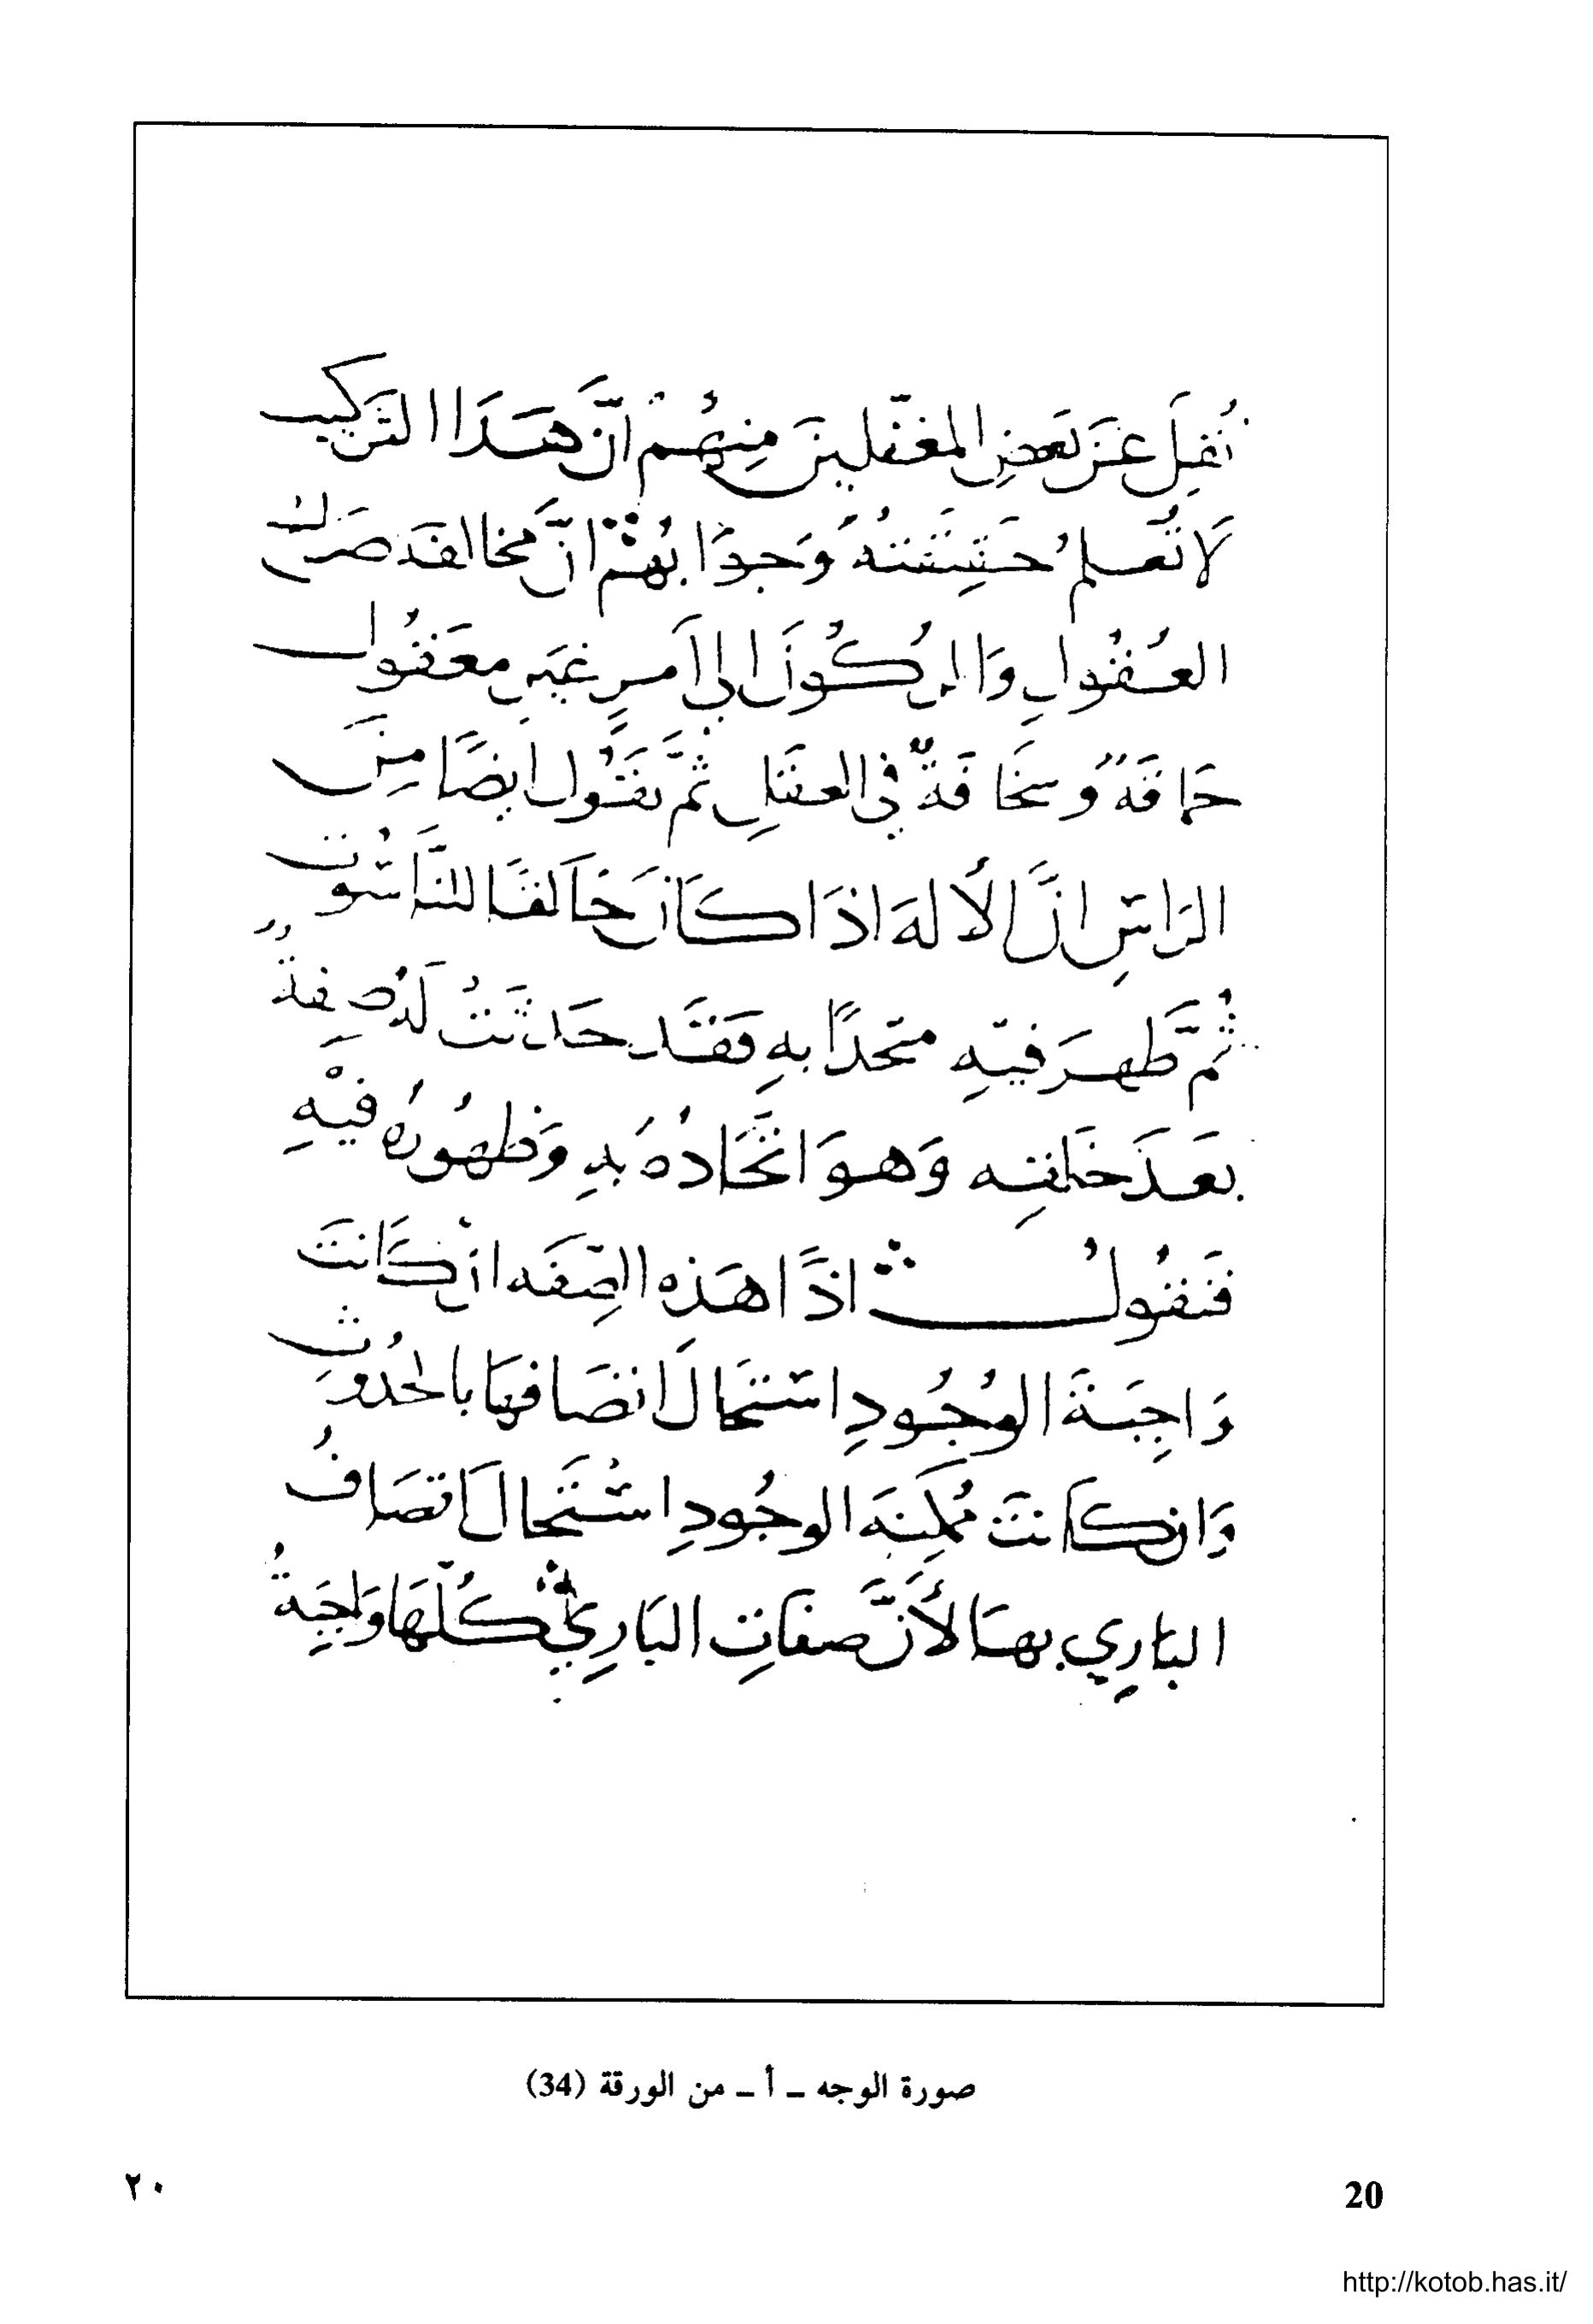 نُقِلَ عَن بَعضِ المغفّلينَ مِنهُم أنَّ هَذَا التَركيب
لَا تُعلمُ حَقِيقَتهُ وَجوَابُهُم انَّ مخالفَة صَرَائح
العُقُولِ وَالرُكُونَ الى أمرٍ غَيرِ معَقُول
حَمَاقَةٌ وسَخَافَةٌ في العقلِ ثمَّ نقُول ايضًا مِنَ
الرَاسِ انَّ الألهَ اذَا كَانَ خَالقًا للنَّاسُوت
ثمَّ ظهرَ فيهِ متحدًا بهِ فقَد حَدثتْ لهُ صِفةٌ
بعَدَ خَلقِه وَهوَ اتّحَادُهُ بهِ وَظهُورُهُ فيْهِ
فَنقُولُ اذًا هَذه الصِّفَه انْ كَانتَ
وَاجِبَةَ الوُجُودِ استَحَالَ اتصَافهَا بالحُدُوثِ
وَان كَانتَ مُمكِنَة الوجُودِ اسْتَحالَ اتصَافُ
البَاري بهَا لأنَّ صفَاتِ البَارِيْ كُلّهَا وَاجِبَةُ
صورة الوجه ـ أ ـ من الورقة (34)
٢٠ 20
http://kotob.has.it/